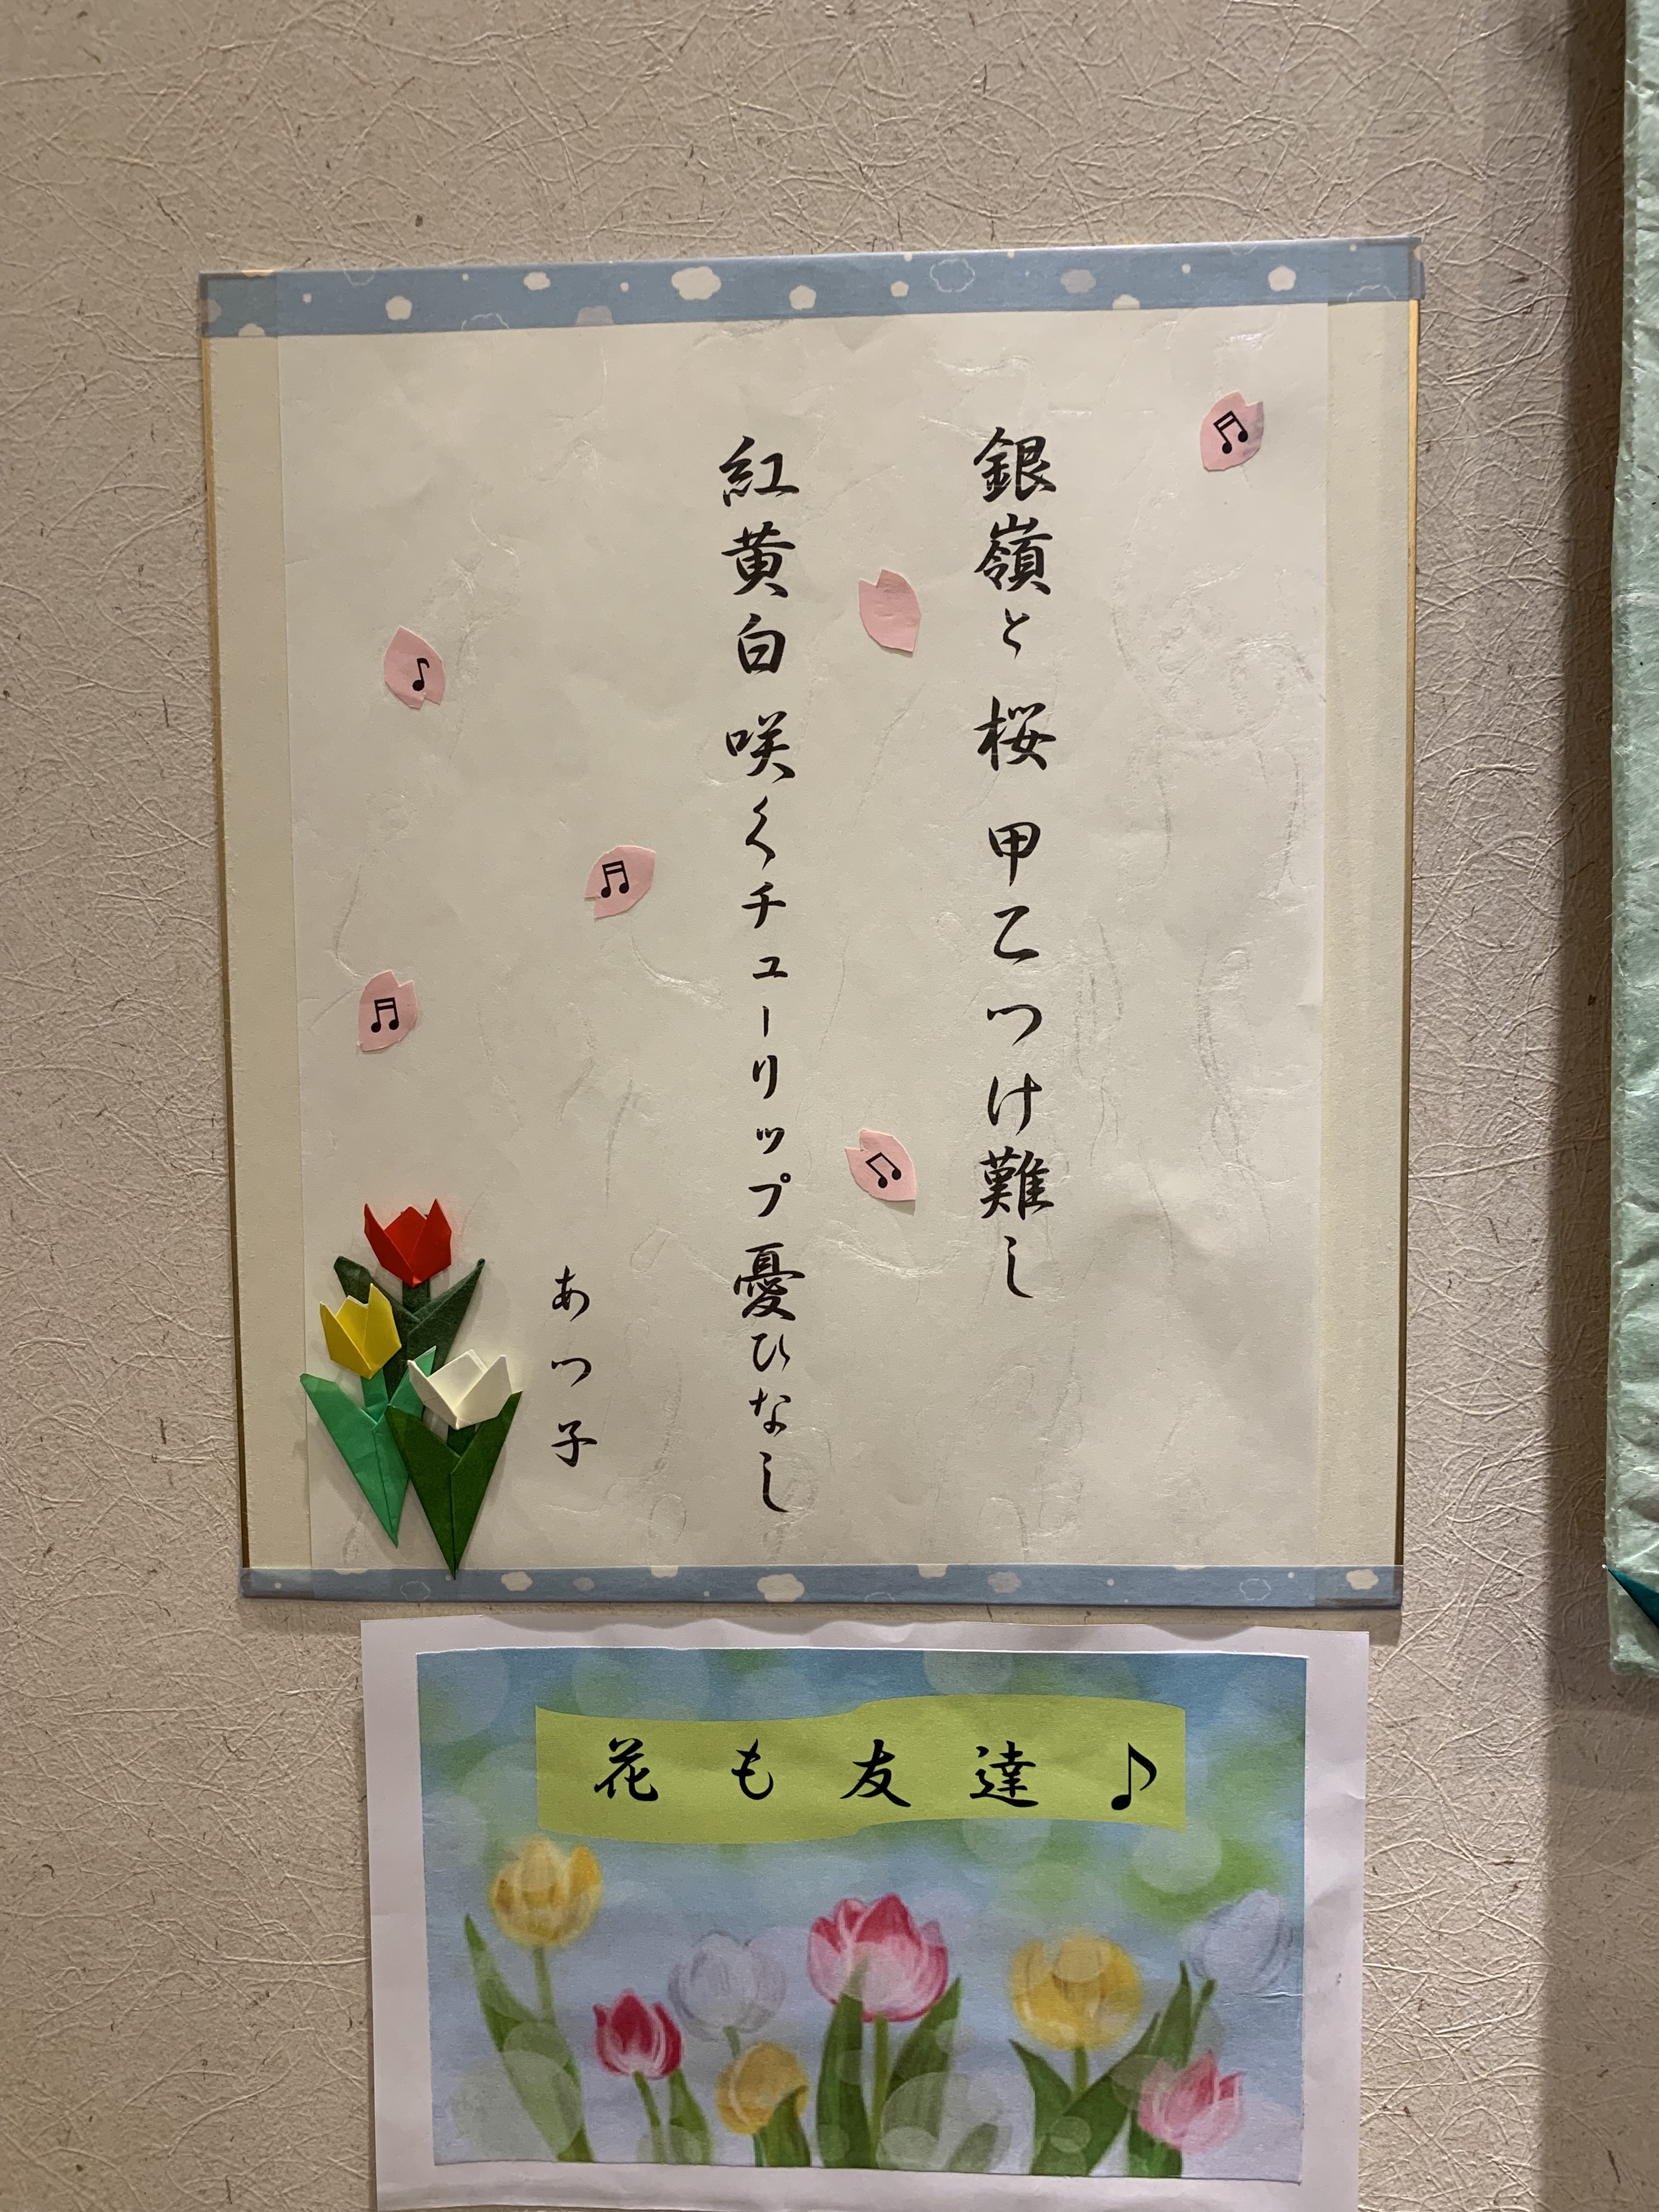 銀嶺と 桜 甲乙つけ難し
紅黄白 咲くチューリップ 憂ひなし
あつ子
花も友達♪